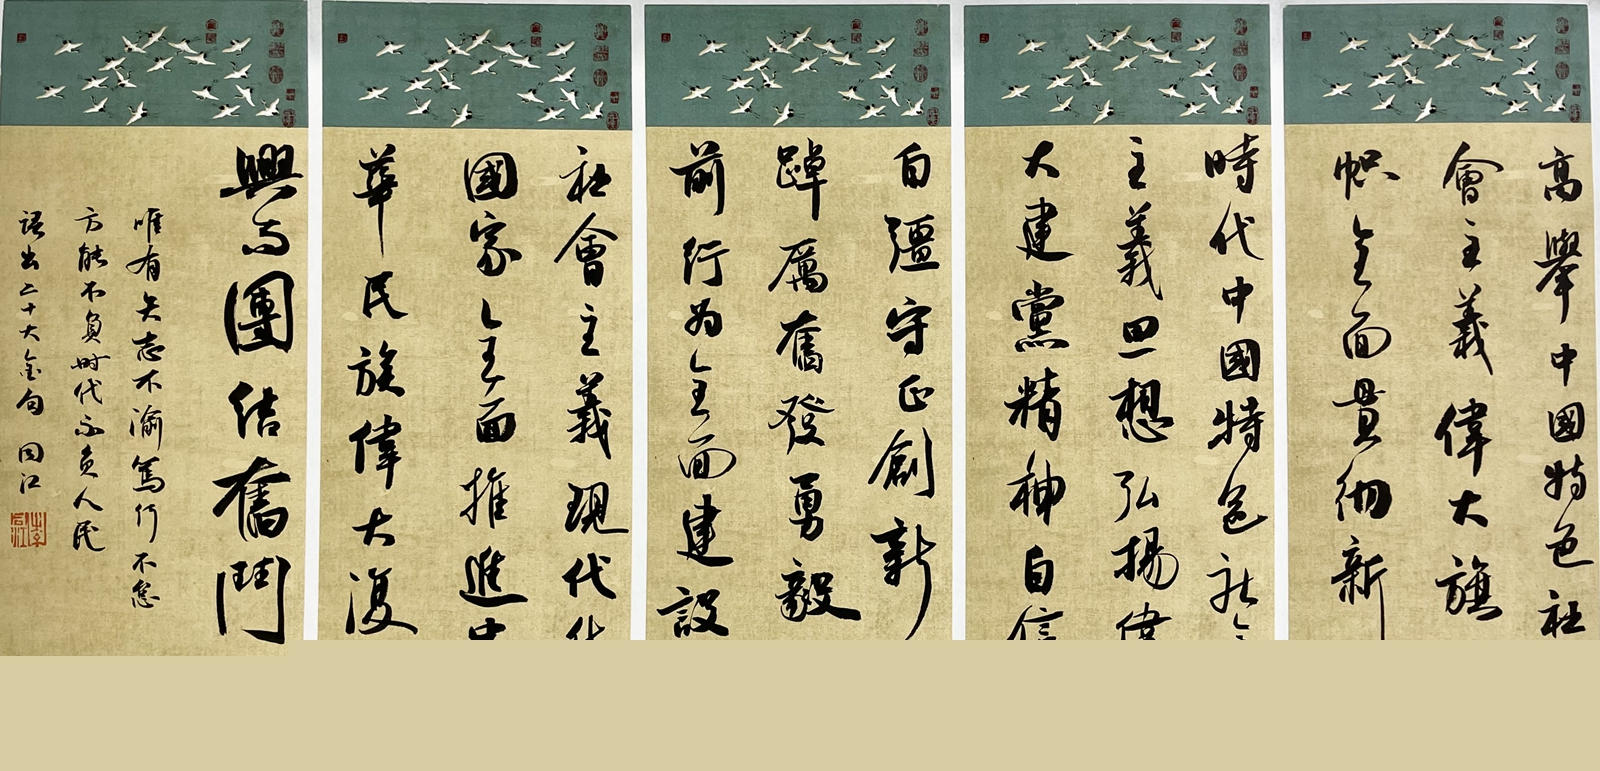 高舉中國特色社
會主義偉大旗
幟全面貫彻新
時代中國特色社
主義思想弘揚偉
大建黨精神自信
自彊守正創新
踔厲奮發勇毅
前行為全面建設
社會主義現代化
國家全面推進中
華民族偉大復
興而團結奮鬥
唯有矢志不渝篤行不怠
方能不負时代不负人民
語出二十大金句 同江